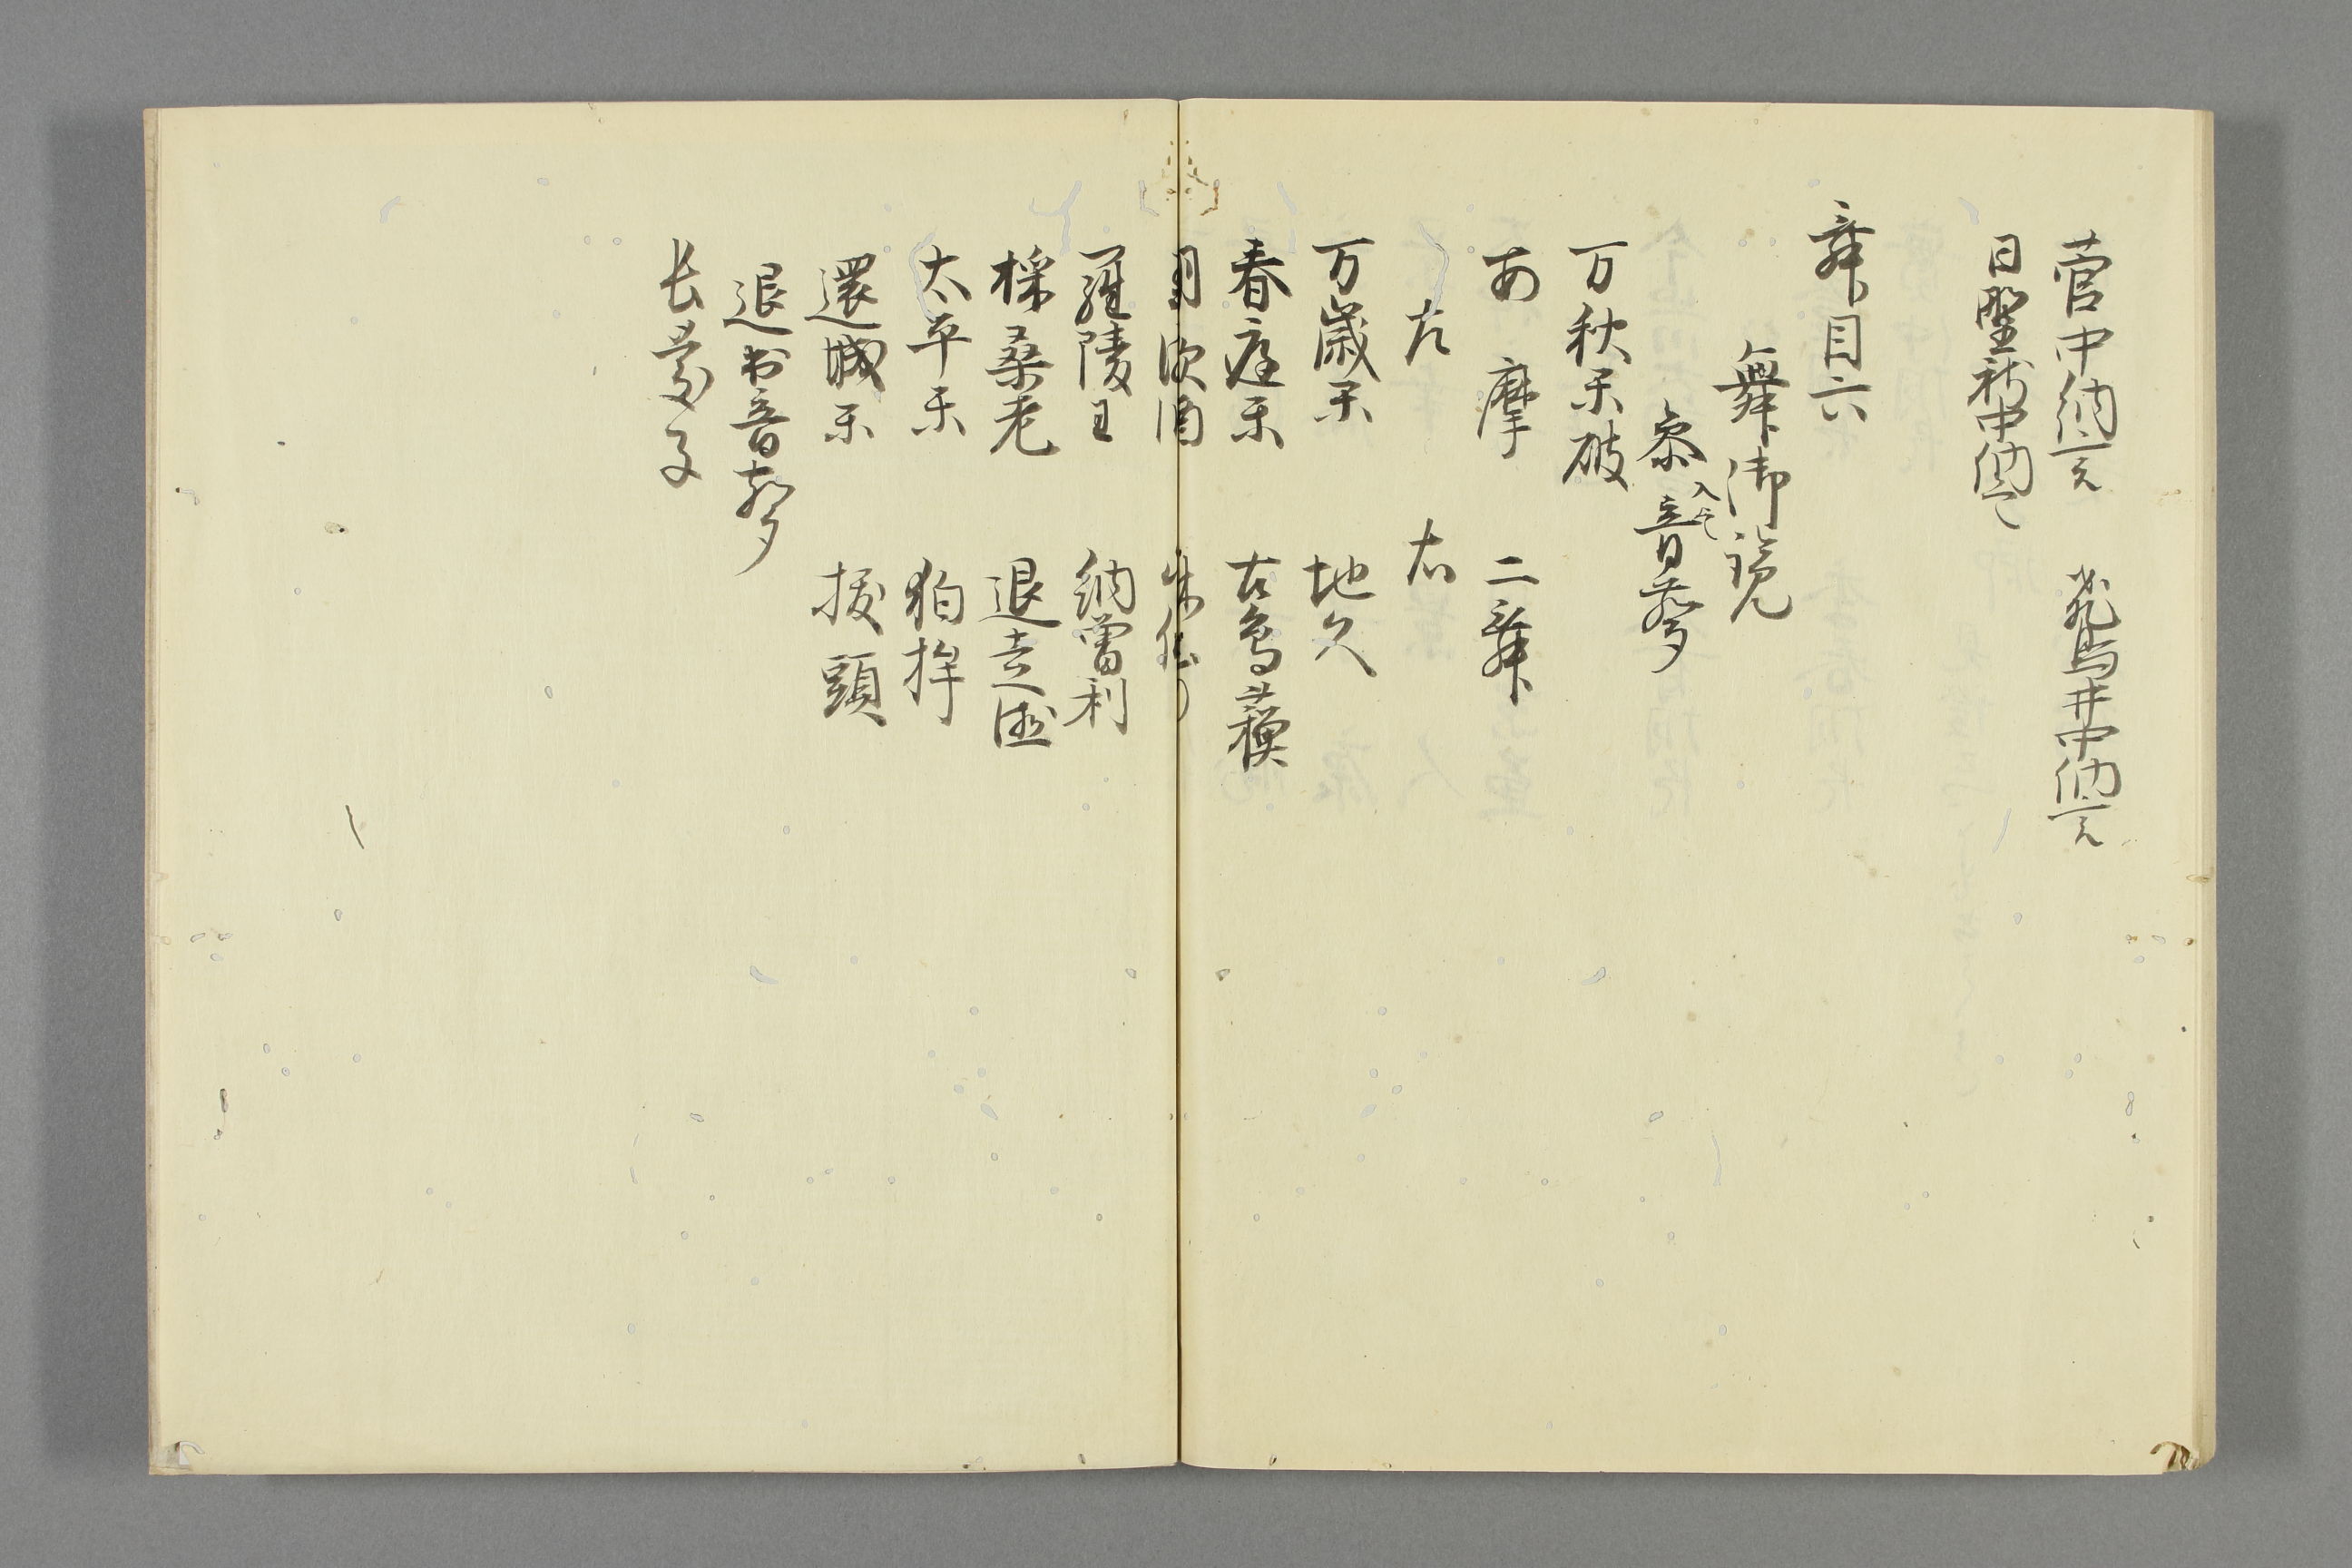 菅中納言　飛鳥井中納言
日野新中納言
舞目六
舞御覧
参入音声
万秋楽破
安摩　二舞
左　右
万歳楽　地久
春庭楽　古鳥蘇
胡飲酒
羅陵王　納曽利
採桑老　退走徳
太平楽　狛桙
還城楽　抜頭
退出音声
長慶子